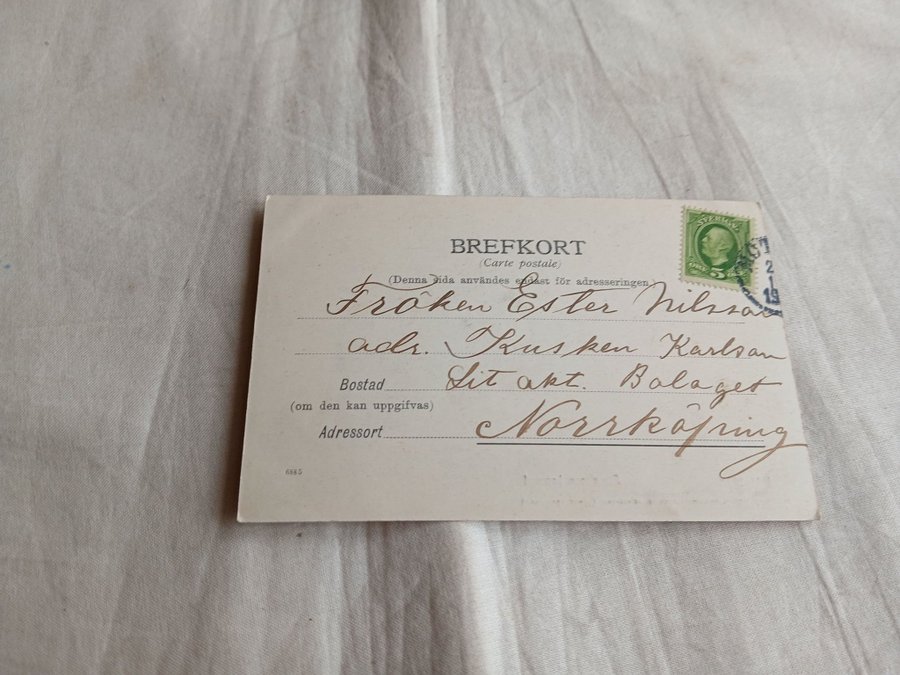 BREFKORT
(Carte postale)
(Denna sida användes endast för adresseringen.)
SVERIGE
5
2
1
19
Fröken Ester Nilsson
adr. Kusken Karlson
Bostad Lit akt. Bolaget
(om den kan uppgifvas)
Adressort Norrköping
6885